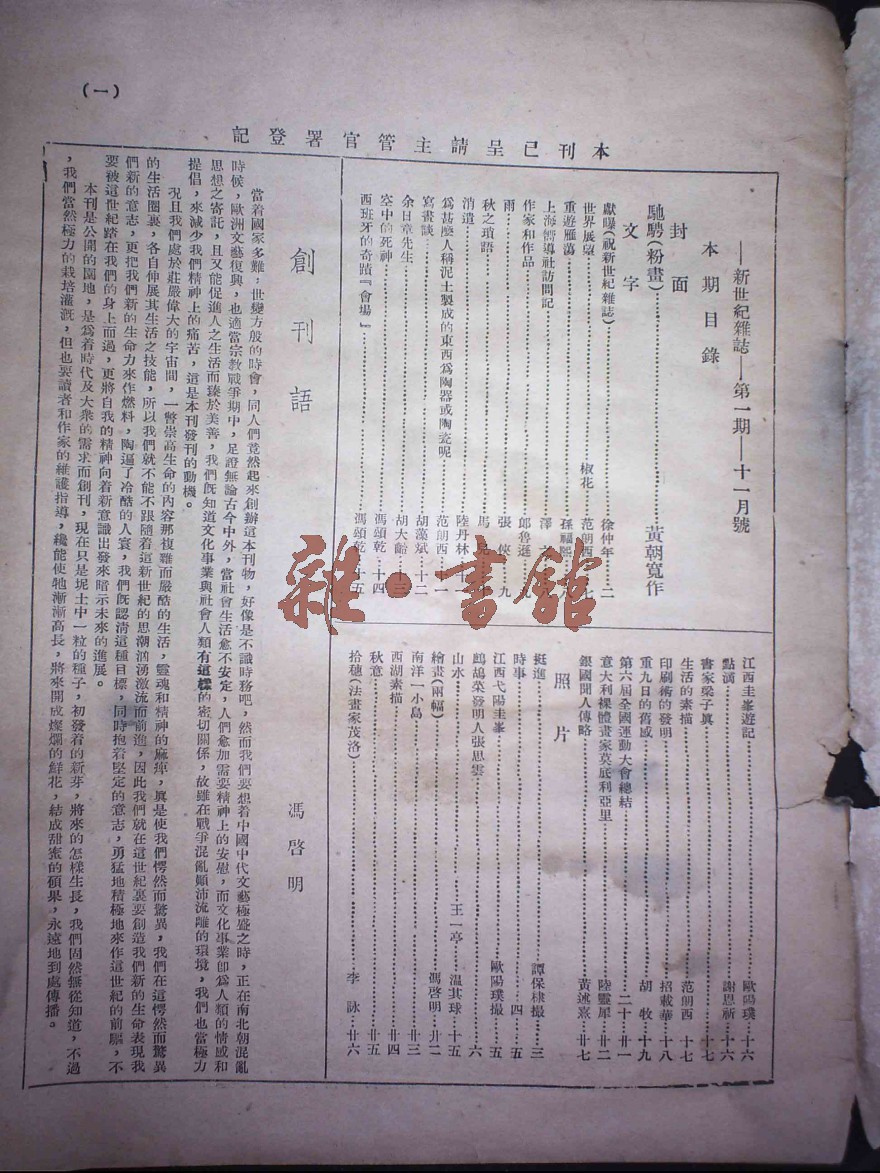 (一)
本刊已呈請主管官署登記
——新世紀雜誌——第一期——十一月號
本期目錄
封面
馳騁(粉畫)……黃朝寬作
文字
獻曝(祝新世紀雜誌)……徐仲年…二
世界展望……椒花 范朗西…七
重遊雁蕩……孫福熙
上海嚮導社訪問記……澤
作家和作品……郎魯遜
雨……張俠…九
秋之瑣語……馬
消遣……陸丹林…十一
爲甚麼人稱泥土製成的東西爲陶器或陶瓷呢……范朗西…十一
寫畫談……胡藻斌…十二
余日章先生……胡大𧮪…十三
空中的死神……馮頌乾…十四
西班牙的奇蹟『會場』……馮頌乾…十五
江西圭峯遊記……歐陽璞…十六
點滴……謝恩祈…十六
書家梁子眞……十七
生活的素描……范朗西…十七
印刷術的發明……招載華…十八
重九日的舊感……胡牧…十九
第六屆全國運動大會總結……二十 廿一
意大利裸體畫家莫底利亞里……陸靈犀…廿二
銀國聞人傳略……黃述熹…廿七
照片
挺進……譚保棣攝…三
時事……四…五
江西弋陽圭峯……歐陽璞攝…五
鷓鴣菜發明人張思雲……六
山水……王一亭…溫其球…十五
繪畫(兩幅)……馮啓明…廿二
南洋一小島……廿三
西湖素描……廿四
秋意……廿五
拾穗(法畫家茂洛)……李詠…廿六
創刊語
馮啓明
當着國家多難,世變方殷的時會,同人們竟然起來創辦這本刊物,好像是不識時務吧,然而我們要想着中國中代文藝極盛之時,正在南北朝混亂
時候,歐洲文藝復興,也適當宗教戰爭期中,足證無論古今中外,當社會生活愈不安定,人們愈加需要精神上的安慰,而文化事業卽爲人類的情感和
思想之寄託,且又能促進人之生活而臻於美善,我們旣知道文化事業與社會人類有這樣的密切關係,故雖在戰爭混亂顚沛流離的環境,我們也當極力
提倡,來減少我們精神上的痛苦,這是本刊發刊的動機。
況且我們處於莊嚴偉大的宇宙間,一瞥崇高生命的內容那複雜而嚴酷的生活,靈魂和精神的麻痺,眞是使我們愕然而驚異,我們在這愕然而驚異
的生活圈裏,各自伸展其生活之技能,所以我們就不能不跟隨着這新世紀的思潮洶湧激流而前進,因此我們就在這世紀裏要創造我們新的生命表現我
們新的意志,更把我們新的生命力來作燃料,陶逼了冷酷的人寰,我們旣認清這種目標,同時抱着堅定的意志,勇猛地積極地來作這世紀的前驅,不
要被這世紀踏在我們的身上而過,更將自我的精神向着新意識出發來暗示未來的進展。
本刊是公開的園地,是爲着時代及大衆的需求而創刊,現在只是坭土中一粒的種子,初發着的新芽,將來的怎樣生長,我們固然無從知道,不過
,我們當然極力的栽培灌漑,但也要讀者和作家的維護指導,纔能使牠漸漸高長,將來開成燦爛的鮮花,結成甜蜜的碩果,永遠地到處傳播。
雜·書館